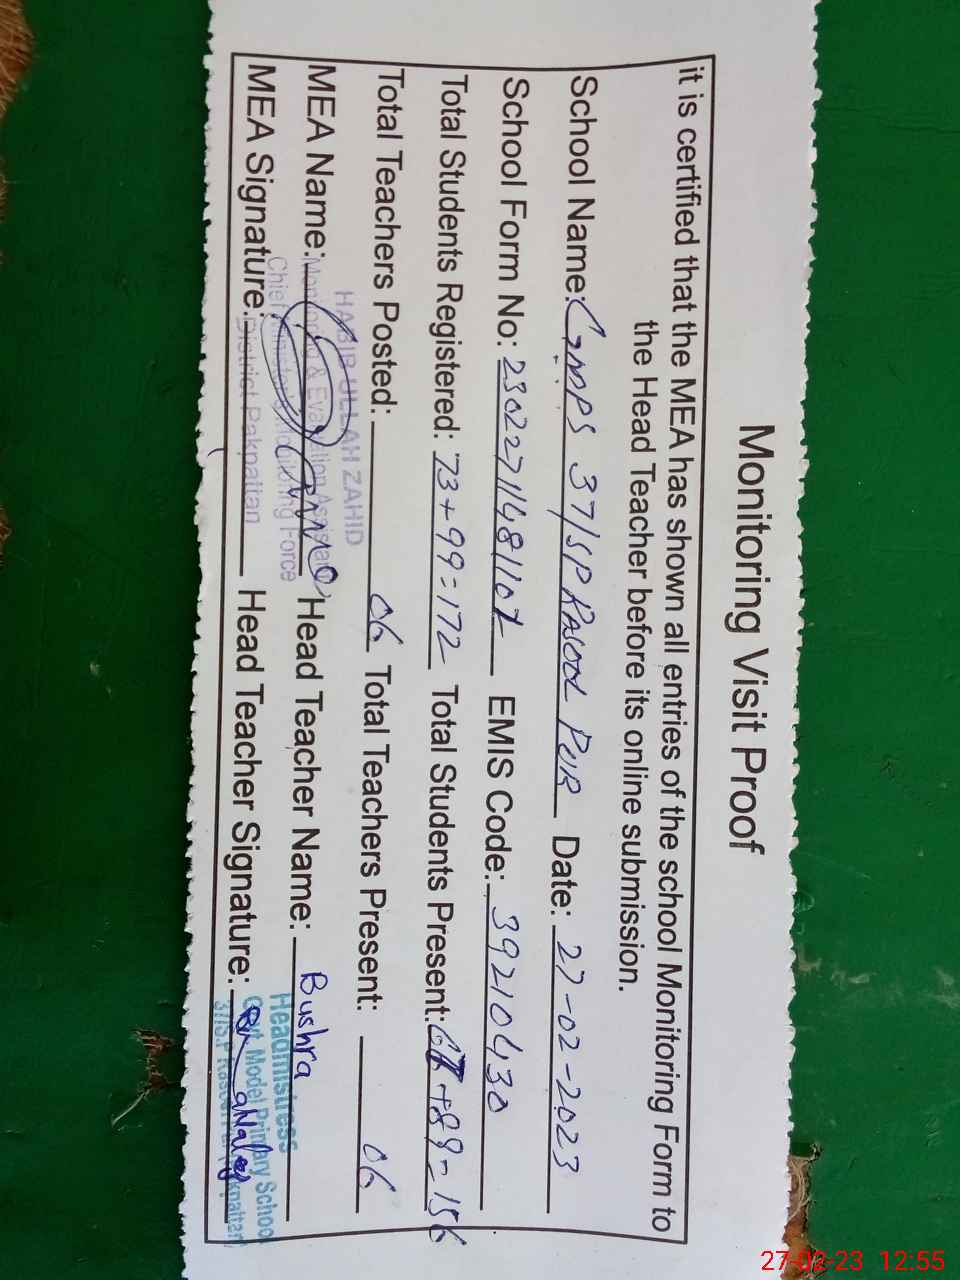 Monitoring Visit Proof
it is certified that the MEA has shown all entries of the school Monitoring Form to
the Head Teacher before its online submission.
School Name: GMPS 37/SP RASOOL PUR Date: 27-02-2023
School Form No: EMIS Code: 39210430
Total Students Registered: 73+99=172 Total Students Present: 67+89=156
Total Teachers Posted: 06 Total Teachers Present: 06
HABIB ULLAH ZAHID
MEA Name: Head Teacher Name: Bushra
Monitoring & Evaluation Assistant
Chief Minister's Monitoring Force
Headmistress
MEA Signature: Head Teacher Signature:
District Pakpattan
Govt. Model Primary School
37/S.P Rasool Pur (Pakpattan)
27-02-23 12:55